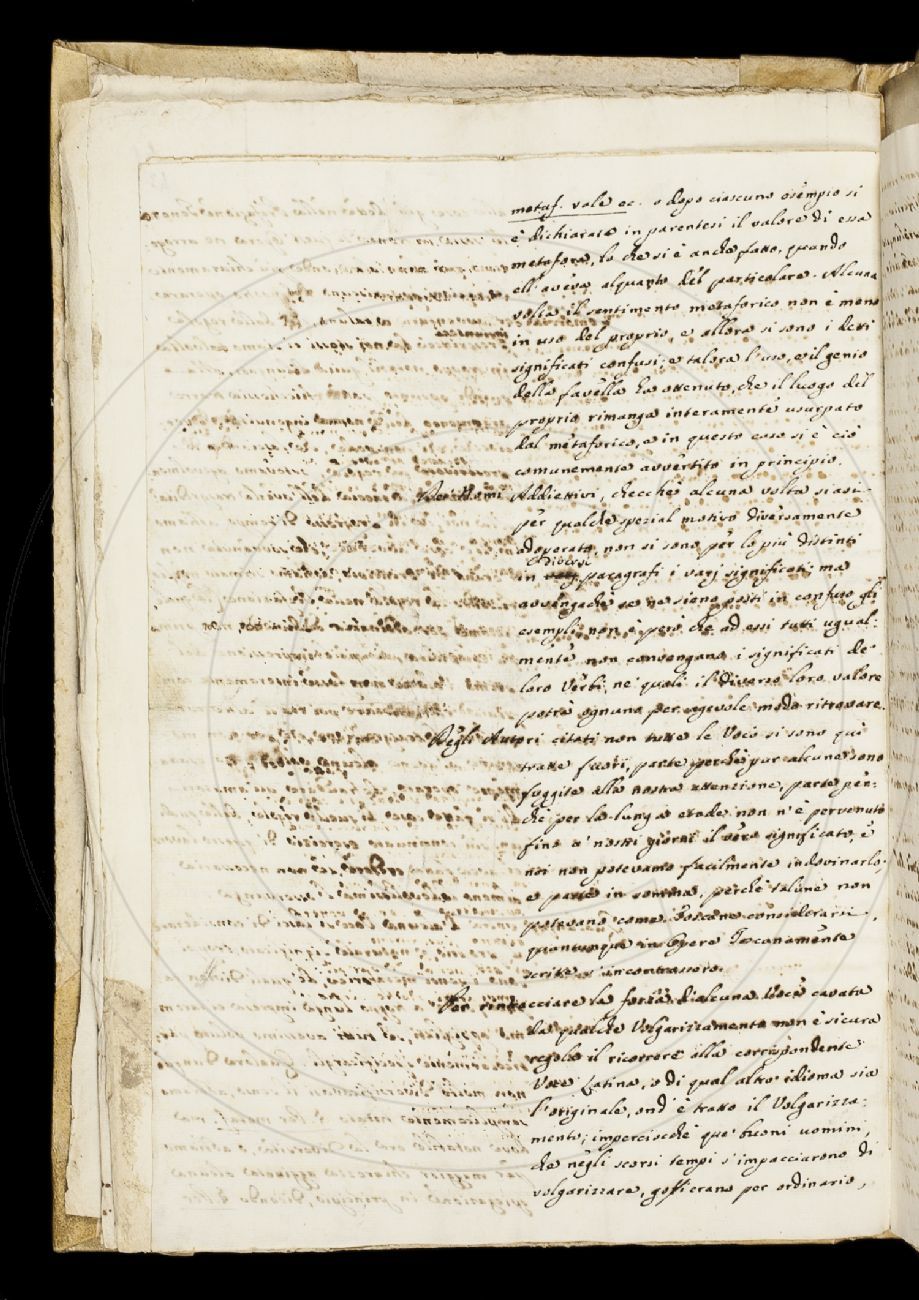 metaf. vale ec. o dopo ciascuno esempio si
è dichiarato in parentesi il valore di essa
metafora, lo che si è anche fatto, quando
ell' aveva alquanto del particolare. Alcuna
volta il sentimento metaforico non è meno
in uso del proprio, e allora si sono i detti
significati confusi; e talora l' uso, e il genio
della favella ha ottenuto, che il luogo del
proprio rimanga interamente usurpato
dal metaforico, e in questo caso si è ciò
comunemente avvertito in principio.
Nomi Addiettivi, checchè alcuna volta siasi
per qualche spezial motivo diversamente
adoperato, non si sono per lo più distinti
in diversi paragrafi i varj significati; ma
avvengachè se ne siano posti in confuso gli
esempli, non è però che ad essi tutti ugual-
mente non convengano i significati de'
loro Verbi, ne' quali il diverso loro valore
potrà ognuno per agevole modo ritrovare.
Degli Autori citati non tutte le Voci si sono quì
tratte fuori, parte perchè pur alcune sono
fuggite alla nostra attenzione, parte per-
chè per la lunga etade non n' è pervenuto
fino a' nostri giorni il vero significato, e
noi non potevamo facilmente indovinarlo;
e parte in somma, perchè talune non
potevano come Toscane considerarsi,
quantunque in Opere Toscanamente
scritte s' incontrassero.
Per rintracciare la forza di alcuna Voce cavata
da qualche Volgarizzamento non è sicura
regola il ricorrere alla corrispondente
Voce Latina, o di qual altro idioma sia
l' originale, ond' è tratto il Volgarizza-
mento; imperciocchè que' buoni uomini,
che negli scorsi tempi s' impacciarono di
volgarizzare, goffi erano per ordinario,